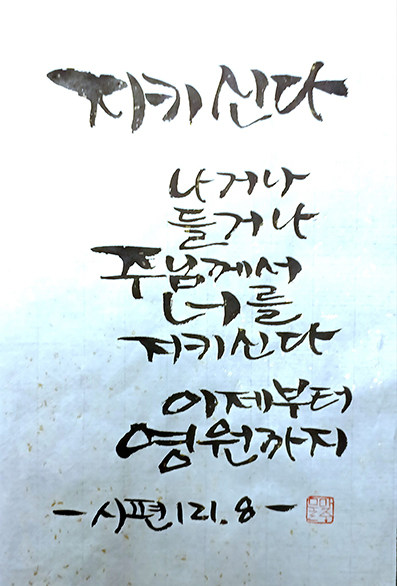 지키신다
나거나
들거나
주님께서
너를
지키신다
이제부터
영원까지
- 시편 121.8 -